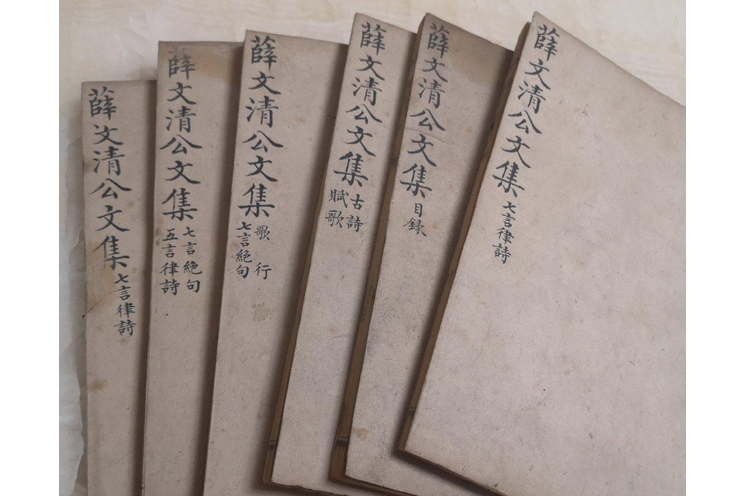 薛文清公文集
七言律詩
薛文清公文集
七言絶句
五言律詩
薛文清公文集
歌行
七言絶句
薛文清公文集
古詩
賦歌
薛文清公文集
目録
薛文清公文集
七言律詩